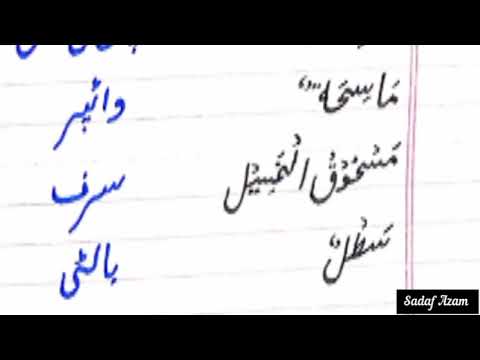 مَاسِحَةٌ وائپر
مَسْحُوْقُ سرف
سَطْلٌ بالٹی
Sadaf Azam